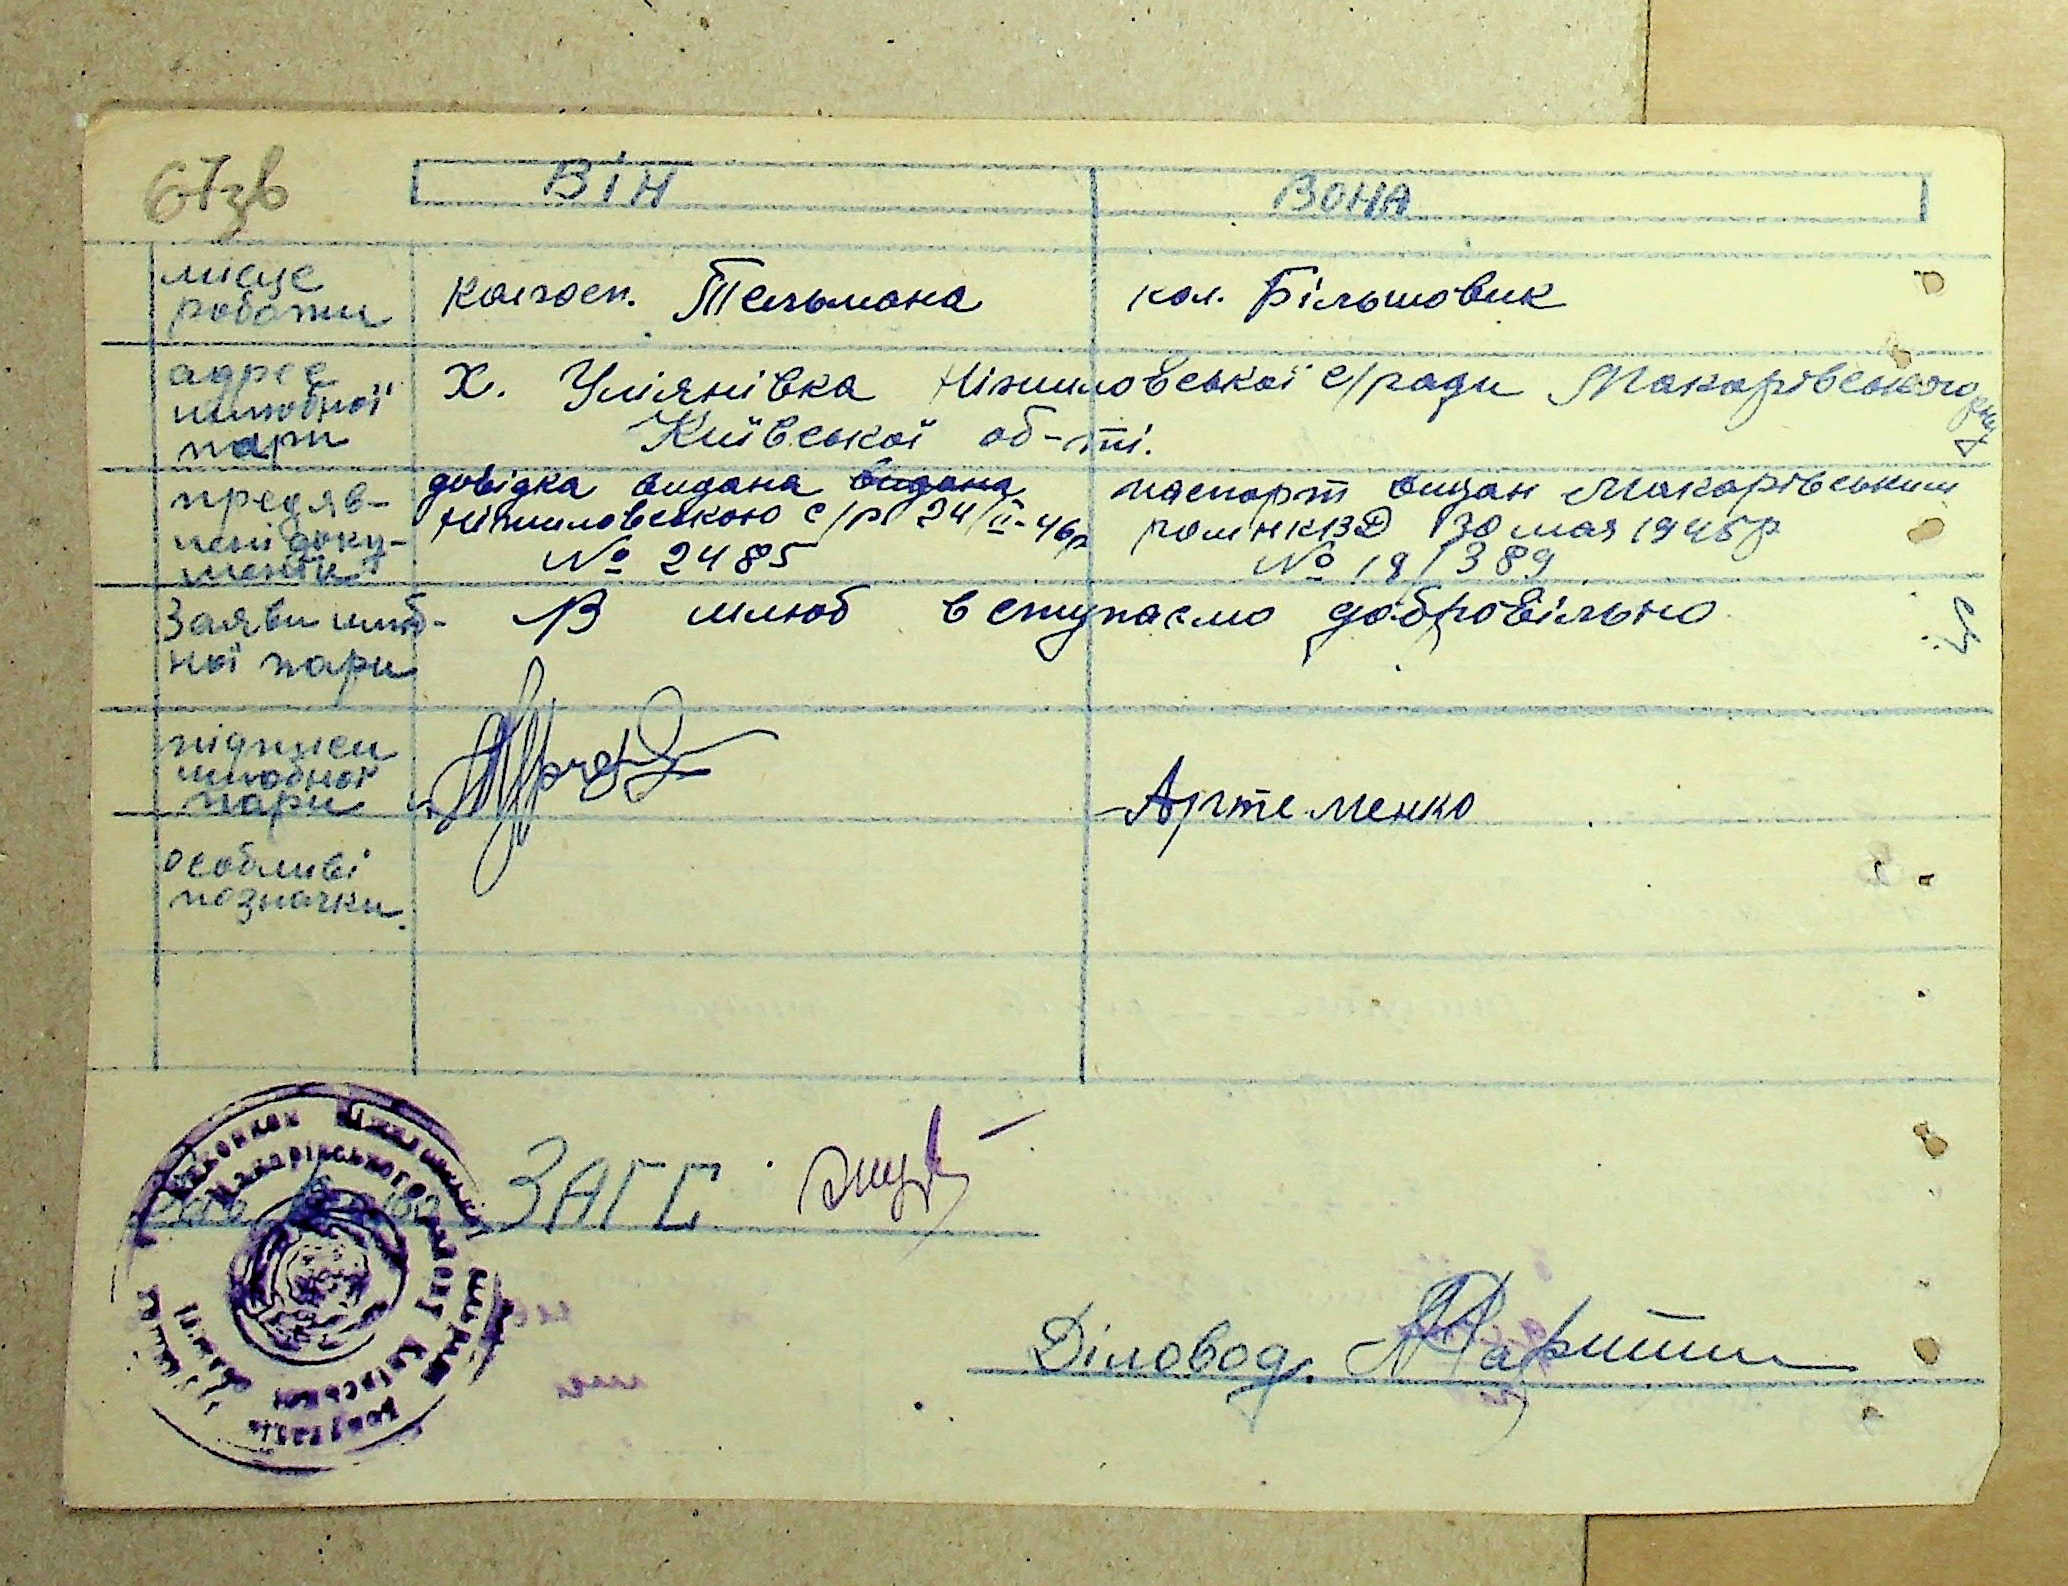 67зв
ВІН ВОНА
місце
роботи
колгосп. Тельмана
кол. Більшовик
адрес
шлюбної
пари
Х. Улянівка Ніжиловської с/ради Макарівського р-ну
Київської об-ті.
предяв-
лені доку-
менти
довідка видана видана
Ніжиловською с/р 24/II-46р
№ 2485
паспорт видан Макарівським
РОМ НКВД 30 мая 1945р
№ 18/389
Заяви шлюб-
ної пари
В шлюб вступаємо добровільно
підписи
шлюбної
пари
Артеменко
особливі
позначки.
ЗАГС
Діловод.
Виконком
Макарівського
Київської